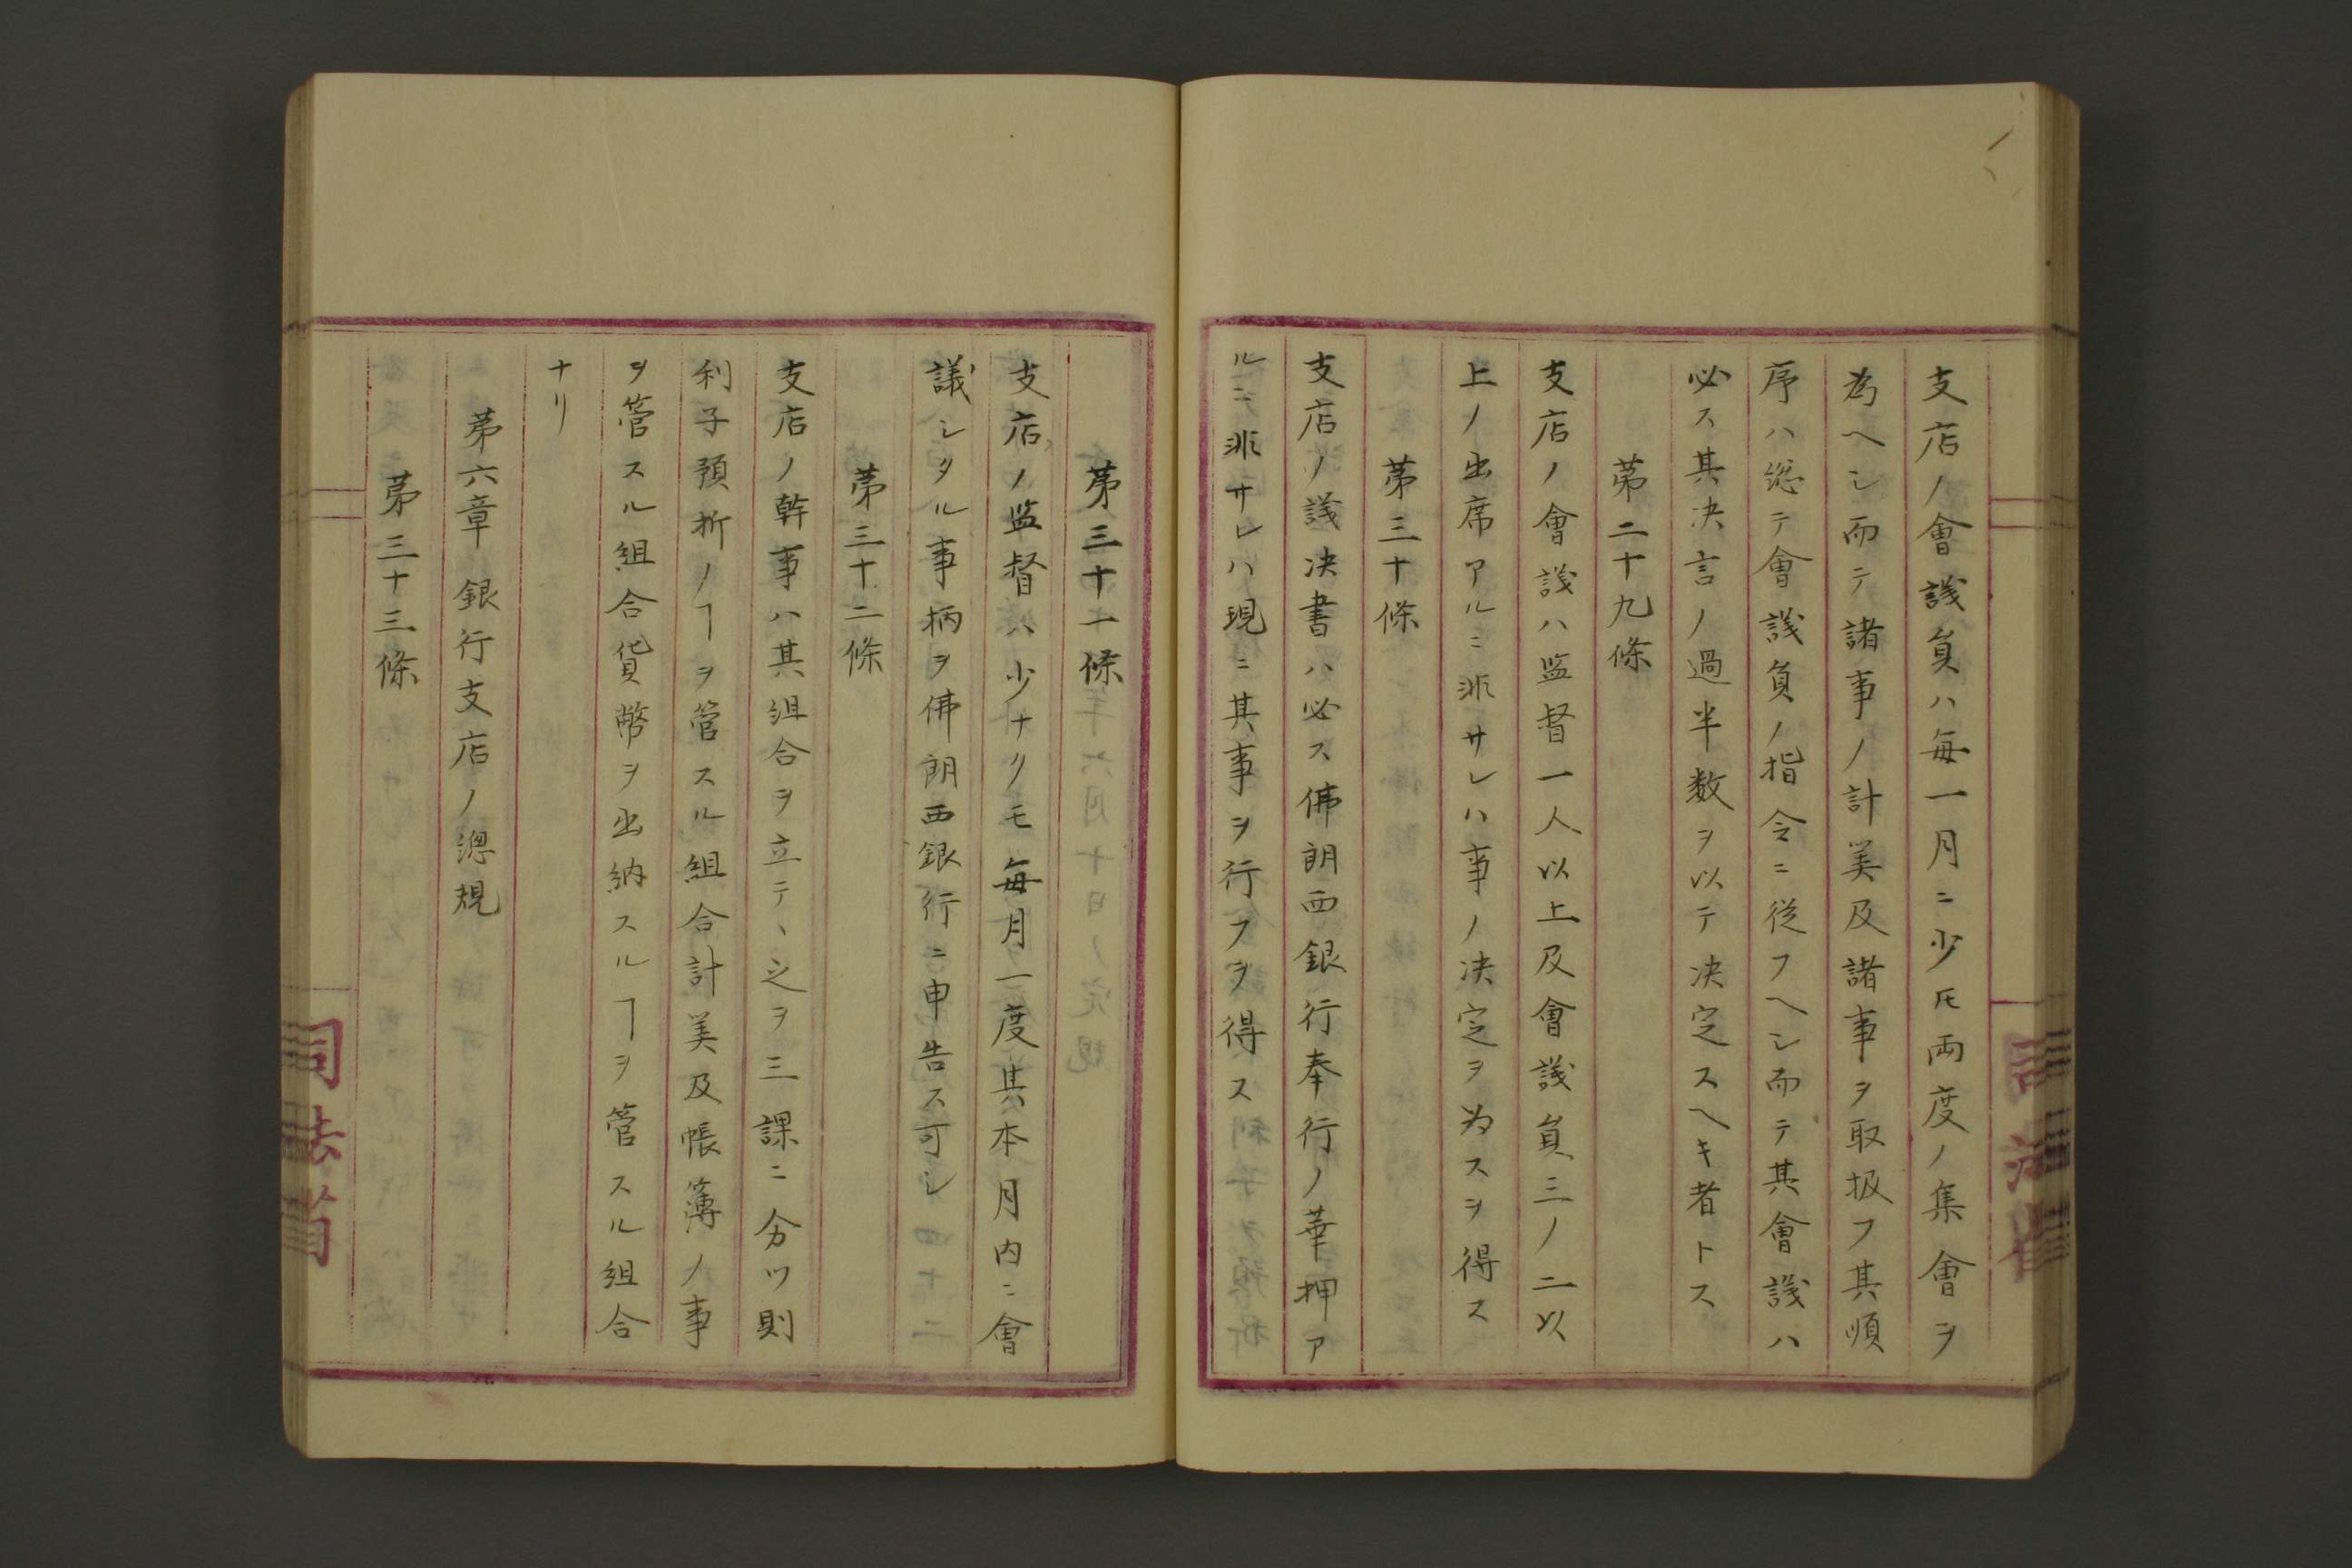 支店ノ會議員ハ毎一月ニ少𪜈両度ノ集會ヲ
為ヘシ而テ諸事ノ計美及諸事ヲ取扱フ其順
序ハ總テ會議負ノ指令ニ從フヘシ而テ其會議ハ
必ス其决言ノ過半数ヲ以テ决定スヘキ者トス
第二十九條
支店ノ會議ハ监督一人以上及會議負三ノ二以
上ノ出席アルニ非サレハ事ノ决定ヲ为スヲ得ス
第三十條
支店ノ議决書ハ必ス佛朗西銀行奉行ノ華押ア
ルニ非サレハ現ニ其事ヲ行フヲ得ス
第三十一條
支店ノ监督ハ少ナクモ毎月一度其本月内ニ會
議シタル事柄ヲ佛朗西銀行ニ申告ス可シ
第三十二條
支店ノ幹事ハ其組合ヲ立テ、之ヲ三課ニ分ツ則
利子預折ノヿヲ管スル組合計美及帳簿ノ事
ヲ管スル組合貨幣ヲ出納スルヿヲ管スル組合
ナリ
第六章 銀行支店ノ總規
第三十三條
司法省